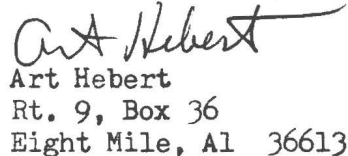 Art Hebert
Art Hebert
Rt. 9, Box 36
Eight Mile, Al 36613